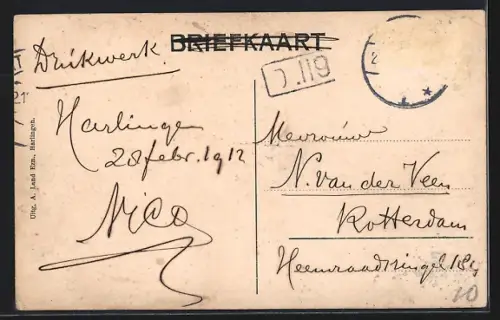 BRIEFKAART
Drukwerk.
Harlingen
28 febr. 1912
Nico
Mevrouw
N. van der Veen
Rotterdam
Heemraadssingel
10
Uitg. A. Land Ezn., Harlingen.